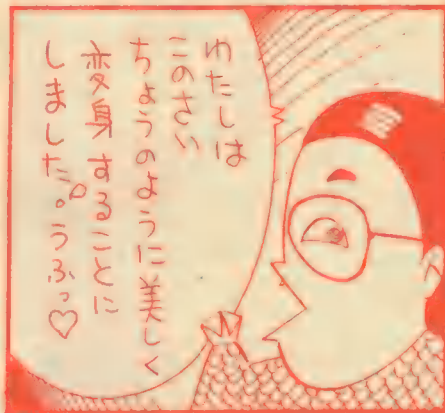 わたしは
このさい
ちょうのように美しく
変身することに
しました。うふっ♡